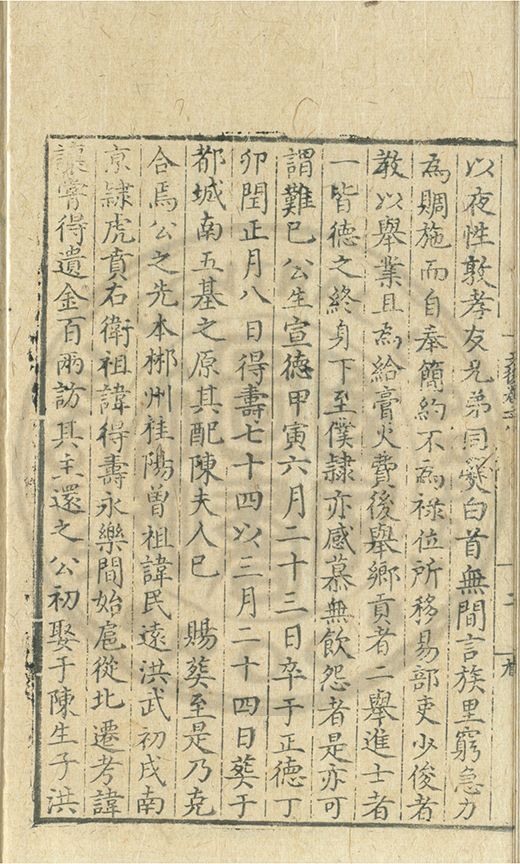 以夜性敦孝友兄弟同爨白首無間言族里窮急力
為賙施而自奉簡約不為祿位所移易部吏少俊者
教以舉業且為給膏火費後舉鄉貢者二舉進士者
一皆德之終身下至僕隸亦感慕無飲怨者是亦可
謂難已公生宣德甲寅六月二十三日卒于正德丁
卯閏正月八日得壽七十四以三月二十四日葬于
都城南五基之原其配陳夫人已　賜葬至是乃克
合焉公之先本郴州桂陽曾祖諱民遠洪武初戌南
京隸虎賁右衛祖諱得壽永樂間始扈從北遷考諱
讓嘗得遺金百兩訪其主還之公初娶于陳生子洪